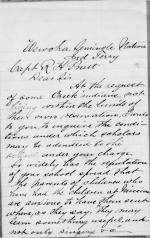 Wewoka Seminole Nation
Ind Terry
Capt R. H. Pratt
Dear Sir
At the request
of some Creek indians, not
living within the limits of
their own reservation, I write
to you to enquire the condi-
tions under which scholars
may be admitted to the
school under your charge
So wide has the reputation
of your school spread that
the parents of children who
have had the children at Mission
are anxious to have them sent
where, as they say, they may
learn something useful, and
not only singing &c